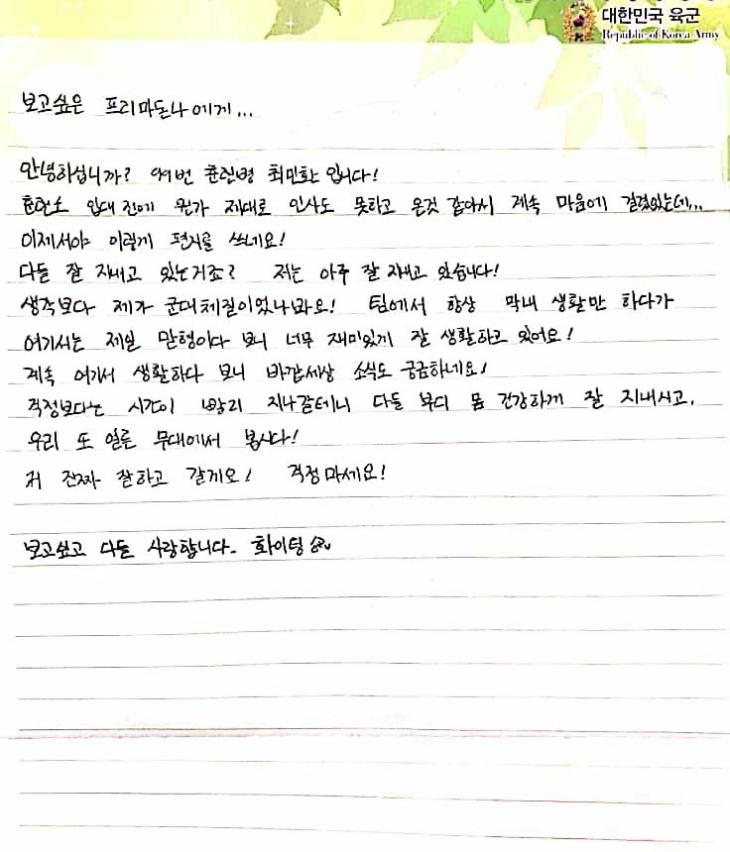 대한민국 육군
Republic of Korea Army
보고싶은 프리마돈나에게...
안녕하십니까? 99번 훈련병 최민환입니다!
훈련소 입대 전에 뭔가 제대로 인사도 못하고 온것 같아서 계속 마음에 걸렸었는데...
이제서야 이렇게 편지를 쓰네요!
다들 잘 지내고 있는거죠? 저는 아주 잘 지내고 있습니다!
생각보다 제가 군대체질이었나봐요! 팀에서 항상 막내 생활만 하다가
여기서는 제일 맏형이다 보니 너무 재미있게 잘 생활하고 있어요!
계속 여기서 생활하다 보니 바깥세상 소식도 궁금하네요!
걱정보다는 시간이 빨리 지나갈테니 다들 부디 몸 건강하게 잘 지내시고,
우리 또 얼른 무대에서 봅시다!
저 진짜 잘하고 갈게요! 걱정마세요!
보고싶고 다들 사랑합니다. 화이팅